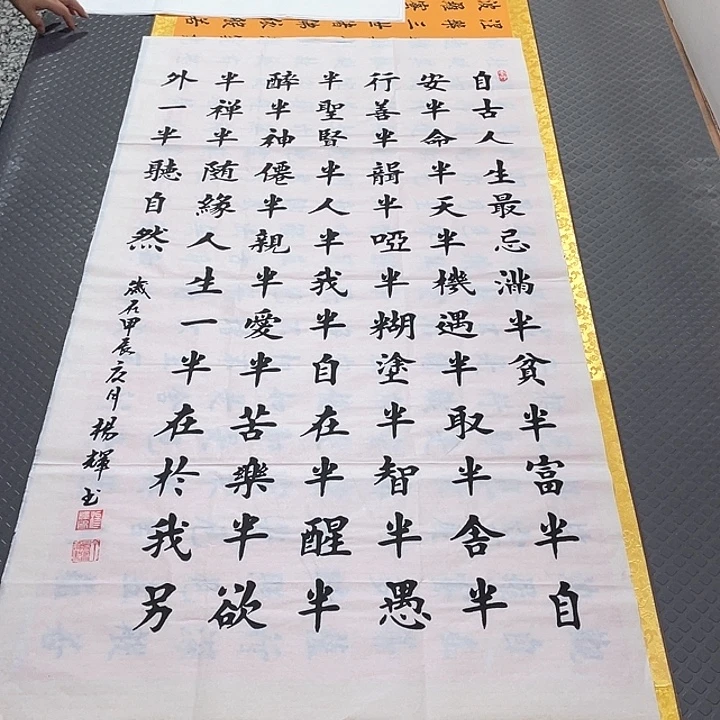 自古人生最忌滿半貧半富半自
安半命半天半機遇半取半舍半
行善半聾半啞半糊塗半智半愚
半聖賢半人半我半自在半醒半
醉半神僊半親半愛半苦樂半欲
半禅半随緣人生一半在於我另
外一半聽自然
歲在甲辰夏月楊輝书
涅槃三世諸佛依般若
波羅蜜